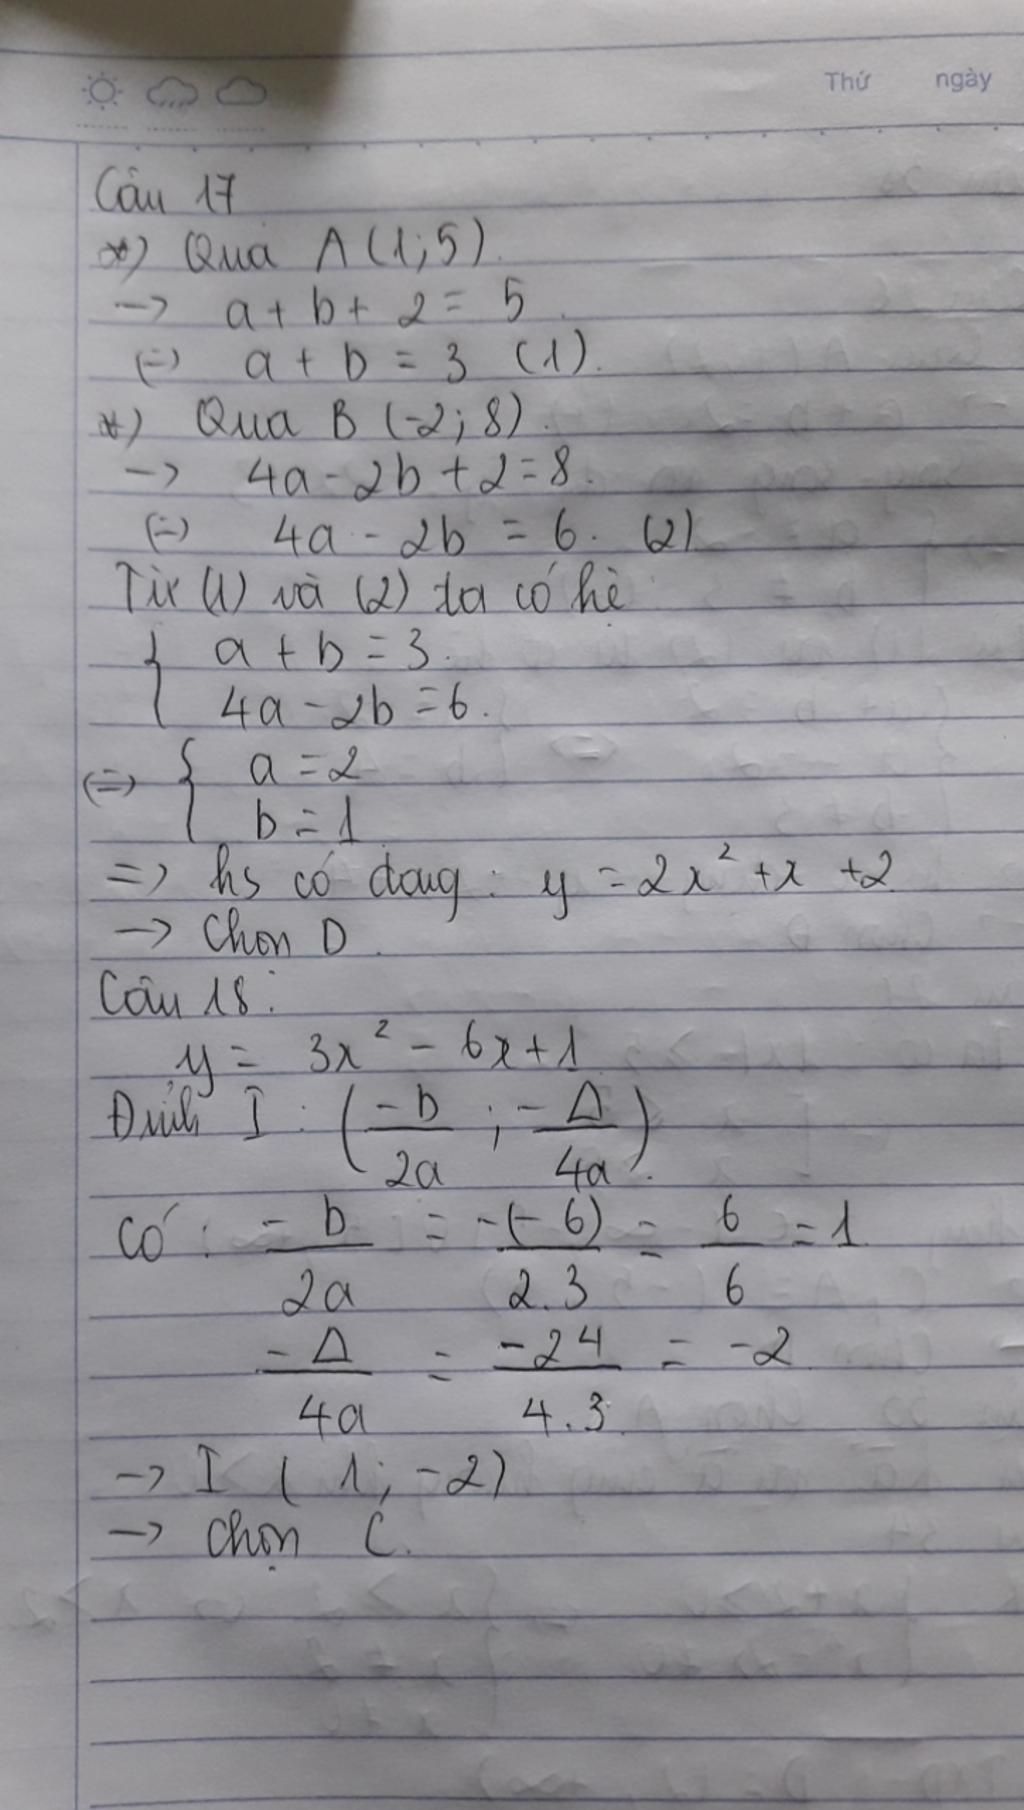 Thứ ngày
Câu 17
*) Qua A (1;5).
-> a + b + 2 = 5
(=) a + b = 3 (1).
*) Qua B (-2; 8).
-> 4a - 2b + 2 = 8.
(=) 4a - 2b = 6. (2)
Từ (1) và (2) ta có hệ
{ a + b = 3.
4a - 2b = 6.
(=) { a = 2
b = 1
=> hs có dạng: y = 2x² + x + 2
-> Chọn D.
Câu 18:
y = 3x² - 6x + 1
Đỉnh I : (-b/2a ; -Δ/4a).
Có : -b/2a = -(-6)/2.3 = 6/6 = 1
-Δ/4a = -24/4.3 = -2
-> I (1; -2)
-> Chọn C.